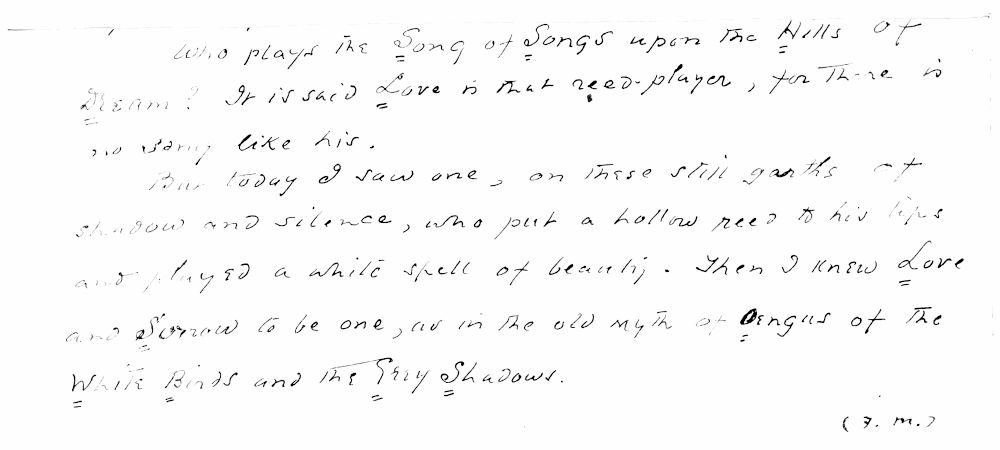 Who plays the Song of Songs upon the Hills of
Dream? It is said Love is that reed-player, for there is
no song like his.
But today I saw one, on these still garths of
shadow and silence, who put a hollow reed to his lips
and played a white spell of beauty. Then I knew Love
and Sorrow to be one, as in the old myth of Oengus of the
White Birds and the Grey Shadows.
(F. M.)